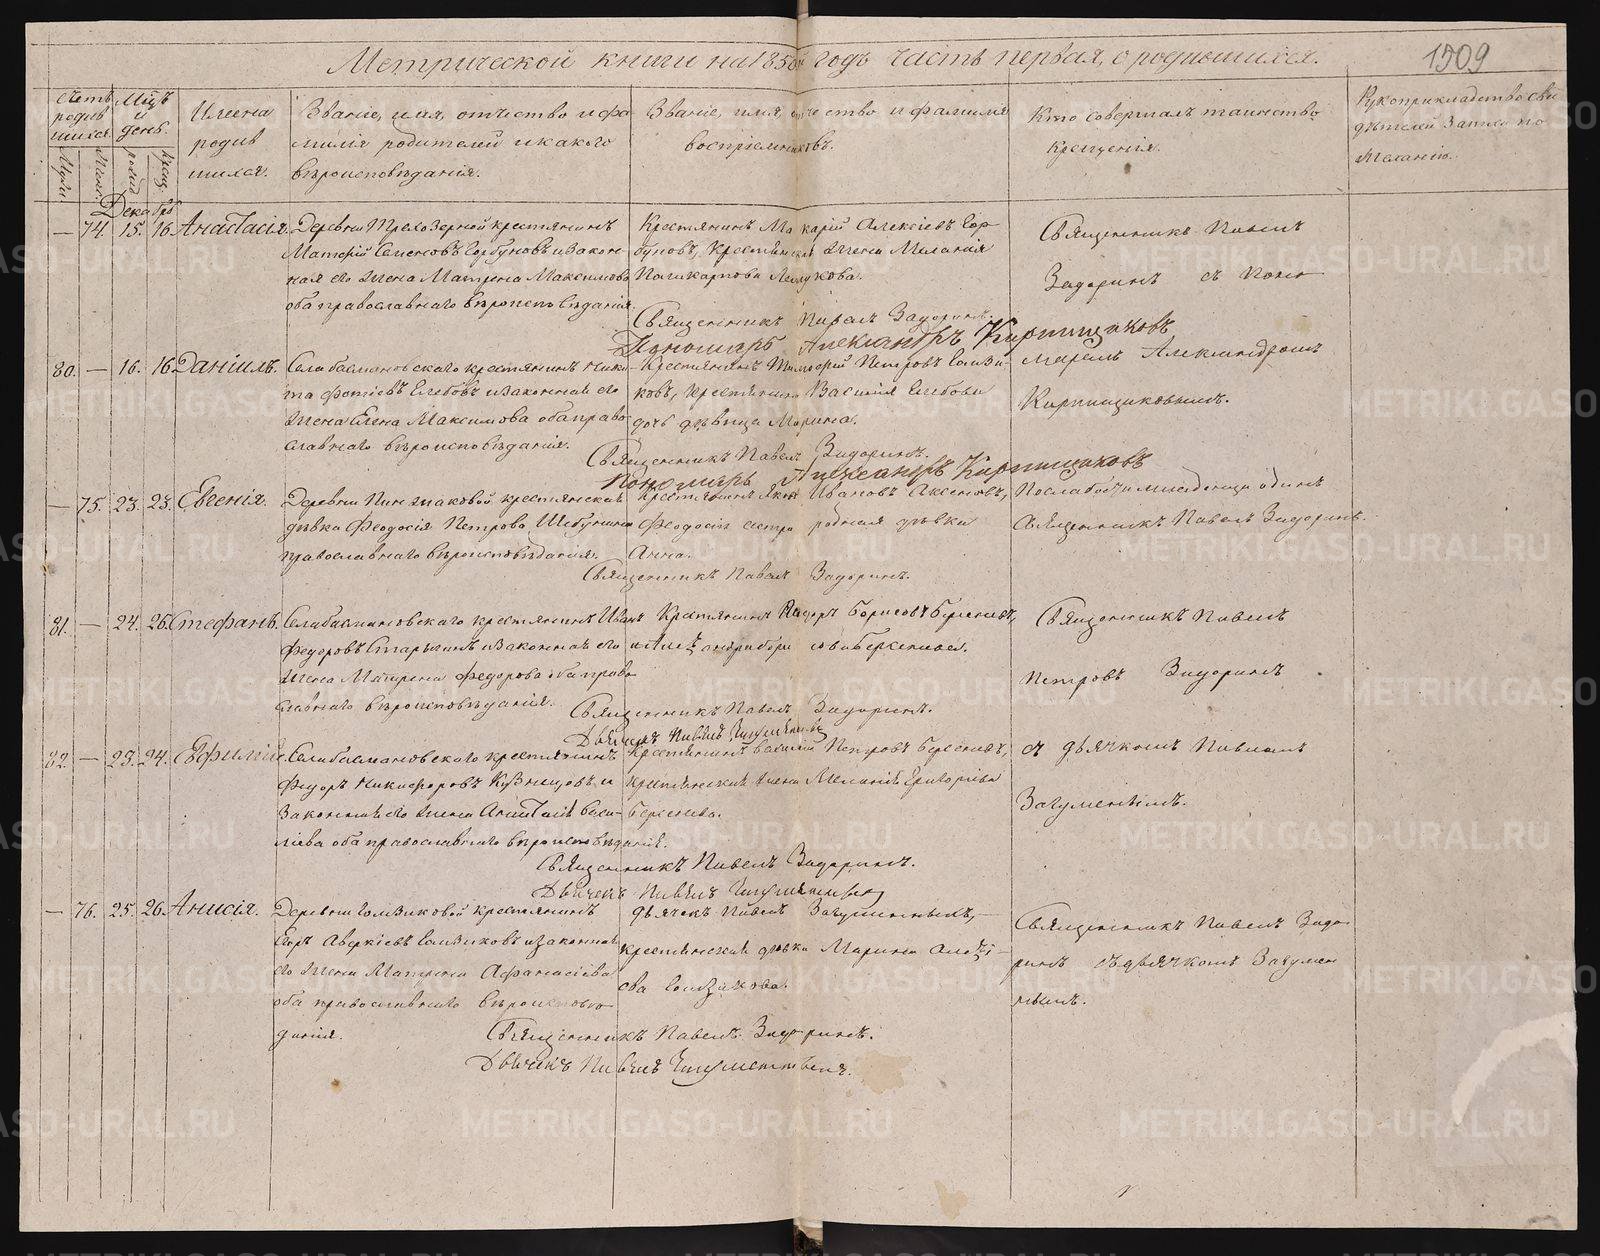 Метрической книги на 1850й годъ часть первая, о родившихся.
1509
Счетъ родив шихся.
Муж.
Женс.
Мцъ и день.
рожд.
крещ.
Имена родив шихся.
Званіе, имя, отчество и фа
милія родителей и какого
вѣроисповѣданія.
Званіе, имя, отчество и фамилія
воспріемниковъ.
Кто совершалъ таинство
крещенія.
Рукоприкладство сви
дѣтелей записи по
желанію.
Декабрь
— 74. 15. 16. Анастасія
Деревни Трехозерной крестьянинъ
Семеновъ Горбуновъ и закон-
ная его жена Матрена Максимова
оба православнаго вѣроисповѣданія.
Крестьянинъ Макарій Алексѣевъ Гор
буновъ, крестьянская жена Меланія
Поликарпова
Священникъ Павелъ
Задоринъ съ Поно
Священникъ Павелъ Задоринъ.
Пономарь Александръ Кирпищиковъ
80. — 16. 16. Даніилъ.
Села Басмановскаго крестьянинъ Ники
та Фотіевъ Глебовъ и законная его
жена Елена Максимова оба право
славнаго вѣроисповѣданія.
Крестьянинъ Петровъ Голзи
ковъ, крестьянина Василія Глебова
дочь дѣвица Марина.
маремъ Александромъ
Кирпищиковымъ.
Священникъ Павелъ Задоринъ.
Пономарь Александръ Кирпищиковъ
— 75. 23. 23. Евгенія.
Деревни крестьянская
дѣвка Феодосія Петрова
православнаго вѣроисповѣданія.
Крестьянинъ Яковъ Ивановъ Аксеновъ,
Феодосіи сестра родная дѣвка
Анна.
По слабости младенца одинъ
Священникъ Павелъ Задоринъ.
Священникъ Павелъ Задоринъ.
81. — 24. 26. Стефанъ.
Села Басмановскаго крестьянинъ Иванъ
Федоровъ Старыгинъ и законная его
жена Матрена Федорова оба право
славнаго вѣроисповѣданія.
Крестьянинъ Борисовъ Берсеневъ,
Берсенева.
Священникъ Павелъ
Петровъ Задоринъ
Священникъ Павелъ Задоринъ.
Дьячекъ Павелъ Загуменныхъ
82. — 23. 24. Ефимій
Села Басмановскаго крестьянинъ
Федоръ Никифоровъ Кузнецовъ и
законная его жена Анастасія Васи-
ліева оба православнаго вѣроисповѣданія.
Крестьянинъ Василій Петровъ Берсеневъ,
крестьянская жена Меланія Григоріева
Берсенева.
съ дьячкомъ Павломъ
Загуменнымъ.
Священникъ Павелъ Задоринъ.
Дьячекъ Павелъ Загуменныхъ
— 76. 25. 26. Анисія.
Деревни Голзиковой крестьянинъ
Егоръ Аверкіевъ Голзиковъ и законная
его жена Матрена Афанасіева
оба православнаго вѣроисповѣ
данія.
Дьячекъ Павелъ Загуменныхъ,
крестьянская дѣвка Марина
ова Голзикова.
Священникъ Павелъ Задо
ринъ съ дьячкомъ Загумен
нымъ.
Священникъ Павелъ Задоринъ.
Дьячекъ Павелъ Загуменныхъ.
METRIKI.GASO-URAL.RU